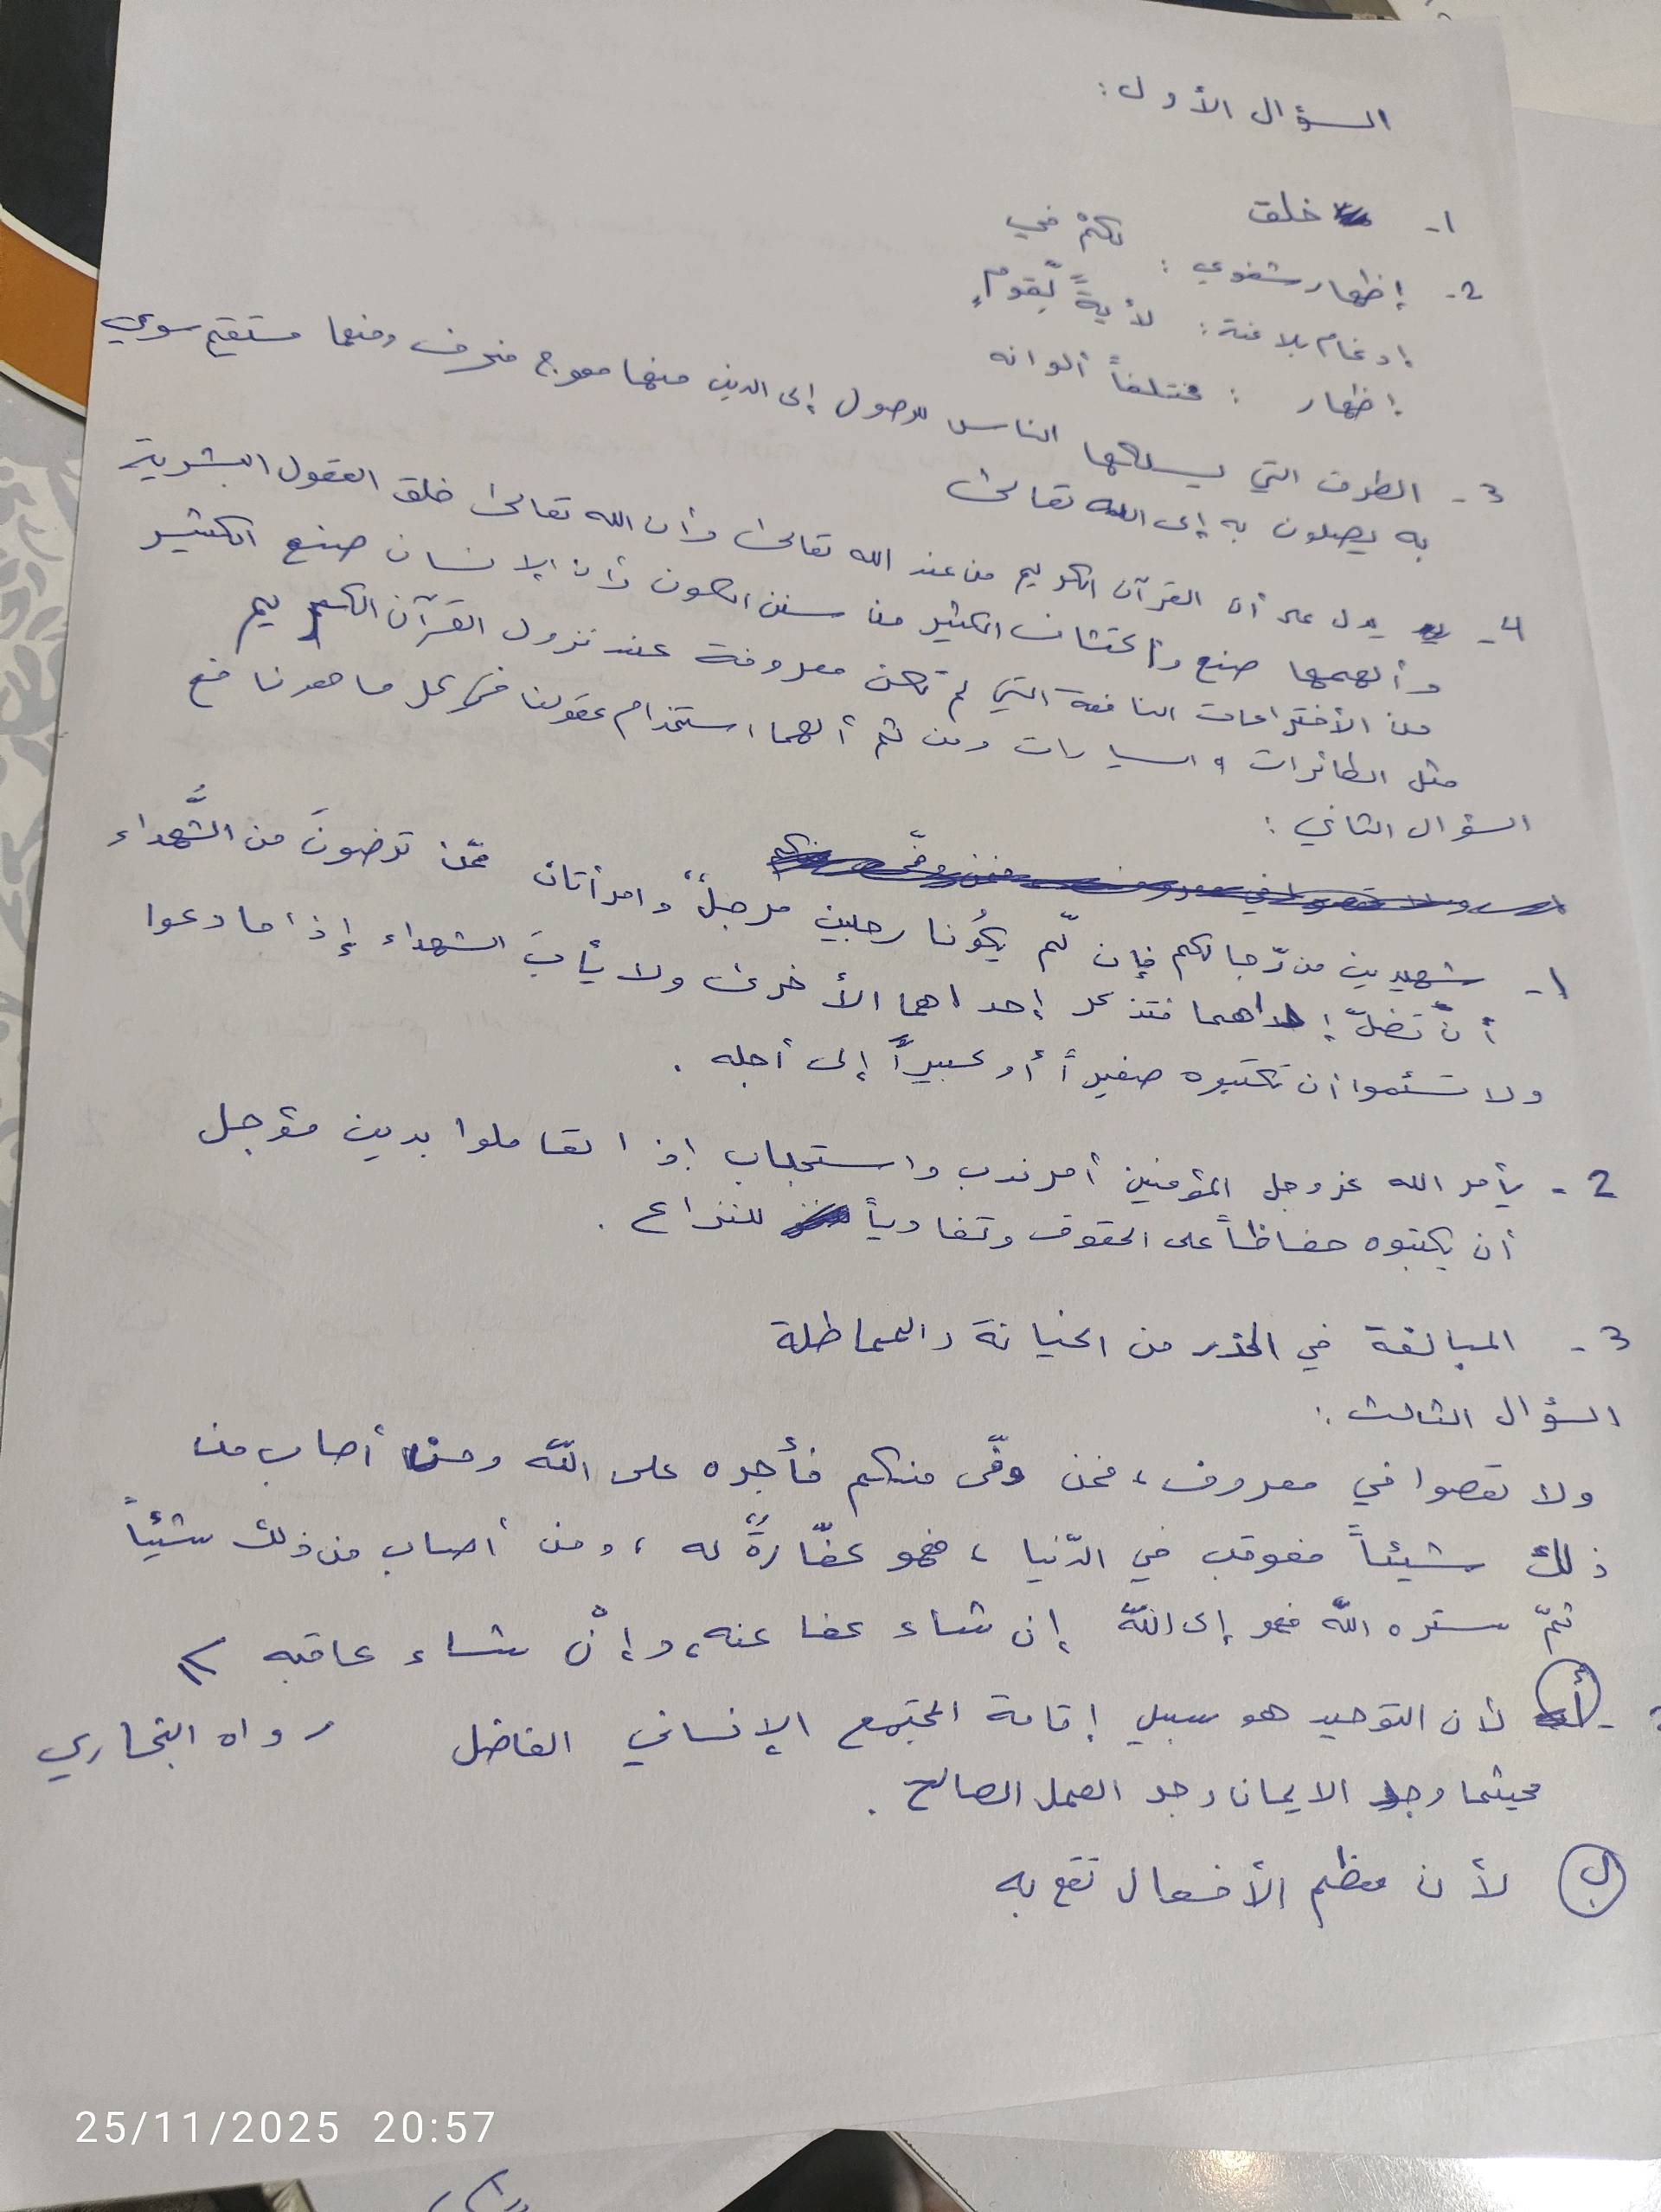 السؤال الأول:
1- خلق
2- إظهار شفوي: لكمْ في
إدغام بلا غنة: لأيةً لّقومٍ
إظهار: مختلفاً ألوانه
3- الطرق التي يسلكها الناس للوصول إلى الدين منها معوج منحرف ومنها مستقيم سوي
به يصلون به إلى الله تعالى
4- يدل على أن القرآن الكريم من عند الله تعالى وأن الله تعالى خلق العقول البشرية
وألهمها صنع واكتشاف الكثير من سنن الكون وأن الإنسان صنع الكثير
من الأختراعات النافعة التي لم تكن معروفة عند نزول القرآن الكريم
مثل الطائرات والسيارات ومن ثم ألهما استخدام عقولنا في كل ما هو نافع
السؤال الثاني:
1- شهيدين من رّجالكم فإن لّم يكُونا رجلين فرجلٌ وامرأتان ممّن ترضونَ من الشُّهداء
أنْ تضلّ إحداهما فتذكر إحداهما الأخرى ولا يأبَ الشهداء إذا ما دعوا
ولا تسئموا أن تكتبوه صغيراً أو كبيراً إلى أجله.
2- يأمر الله عز وجل المؤمنين أمر ندب واستحباب إذا تعاملوا بدين مؤجل
أن يكتبوه حفاظاً على الحقوق وتفادياً للنزاع.
3- المبالغة في الحذر من الخيانة والمماطلة
السؤال الثالث:
ولا تعصوا في معروف، فمن وفّى منكم فأجره على اللّه ومن أصاب من
ذلك شيئاً فعوقب في الدّنيا، فهو كفّارةٌ له، ومن أصاب من ذلك شيئاً
ثمّ ستره اللّه فهو إلى اللّه إن شاء عفا عنه، وإنْ شاء عاقبه »
رواه البخاري
أ- لأن التوحيد هو سبيل إقامة المجتمع الإنساني الفاضل
فحيثما وجد الايمان وجد العمل الصالح.
ب لأن معظم الأفعال تقع به
25/11/2025 20:57